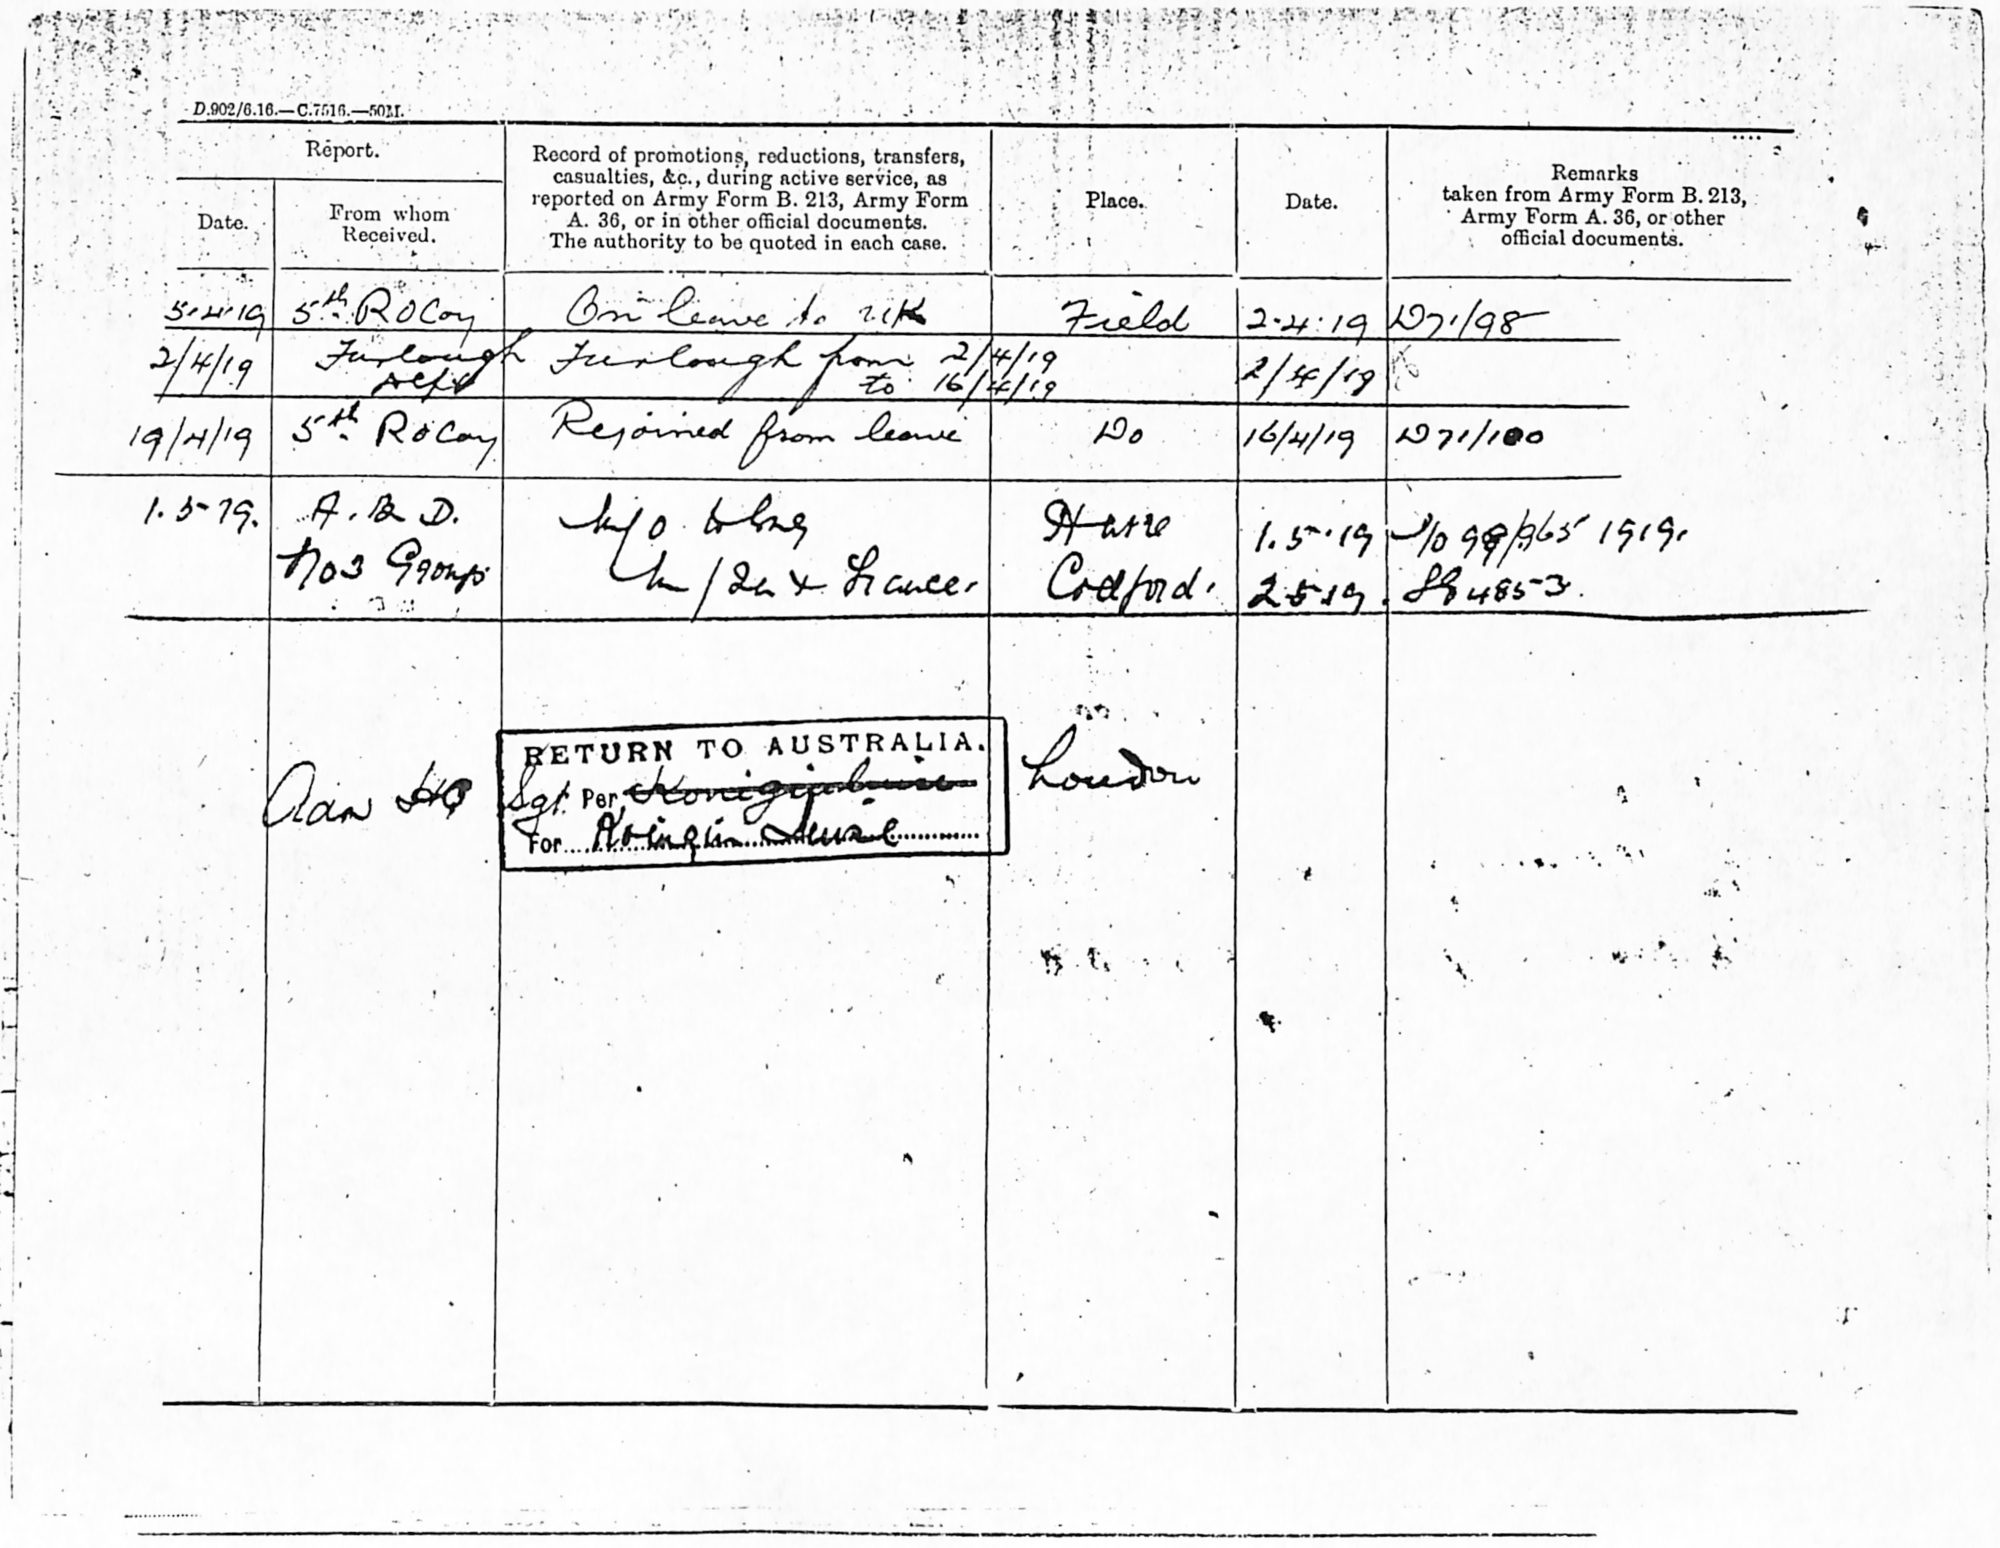 D.902/6.16.—C.7516.—50M.
Report.
Date.
From whom
Received.
Record of promotions, reductions, transfers,
casualties, &c., during active service, as
reported on Army Form B. 213, Army Form
A. 36, or in other official documents.
The authority to be quoted in each case.
Place.
Date.
Remarks
taken from Army Form B. 213,
Army Form A. 36, or other
official documents.
5.4.19 5th ROCoy On leave to UK Field 2.4.19 D71/98
2/4/19 Furlough Furlough from 2/4/19 2/4/19
Dept to 16/4/19
19/4/19 5th ROCoy Rejoined from leave Do 16/4/19 D71/100
1.5.19. A.B.D. M/o to Eng Havre 1.5.19 1919.
No3 Group M/In France. Codford. 2.5.19. 4853.
RETURN TO AUSTRALIA.
Adm HQ Sgt. Per London
For Königin Luise